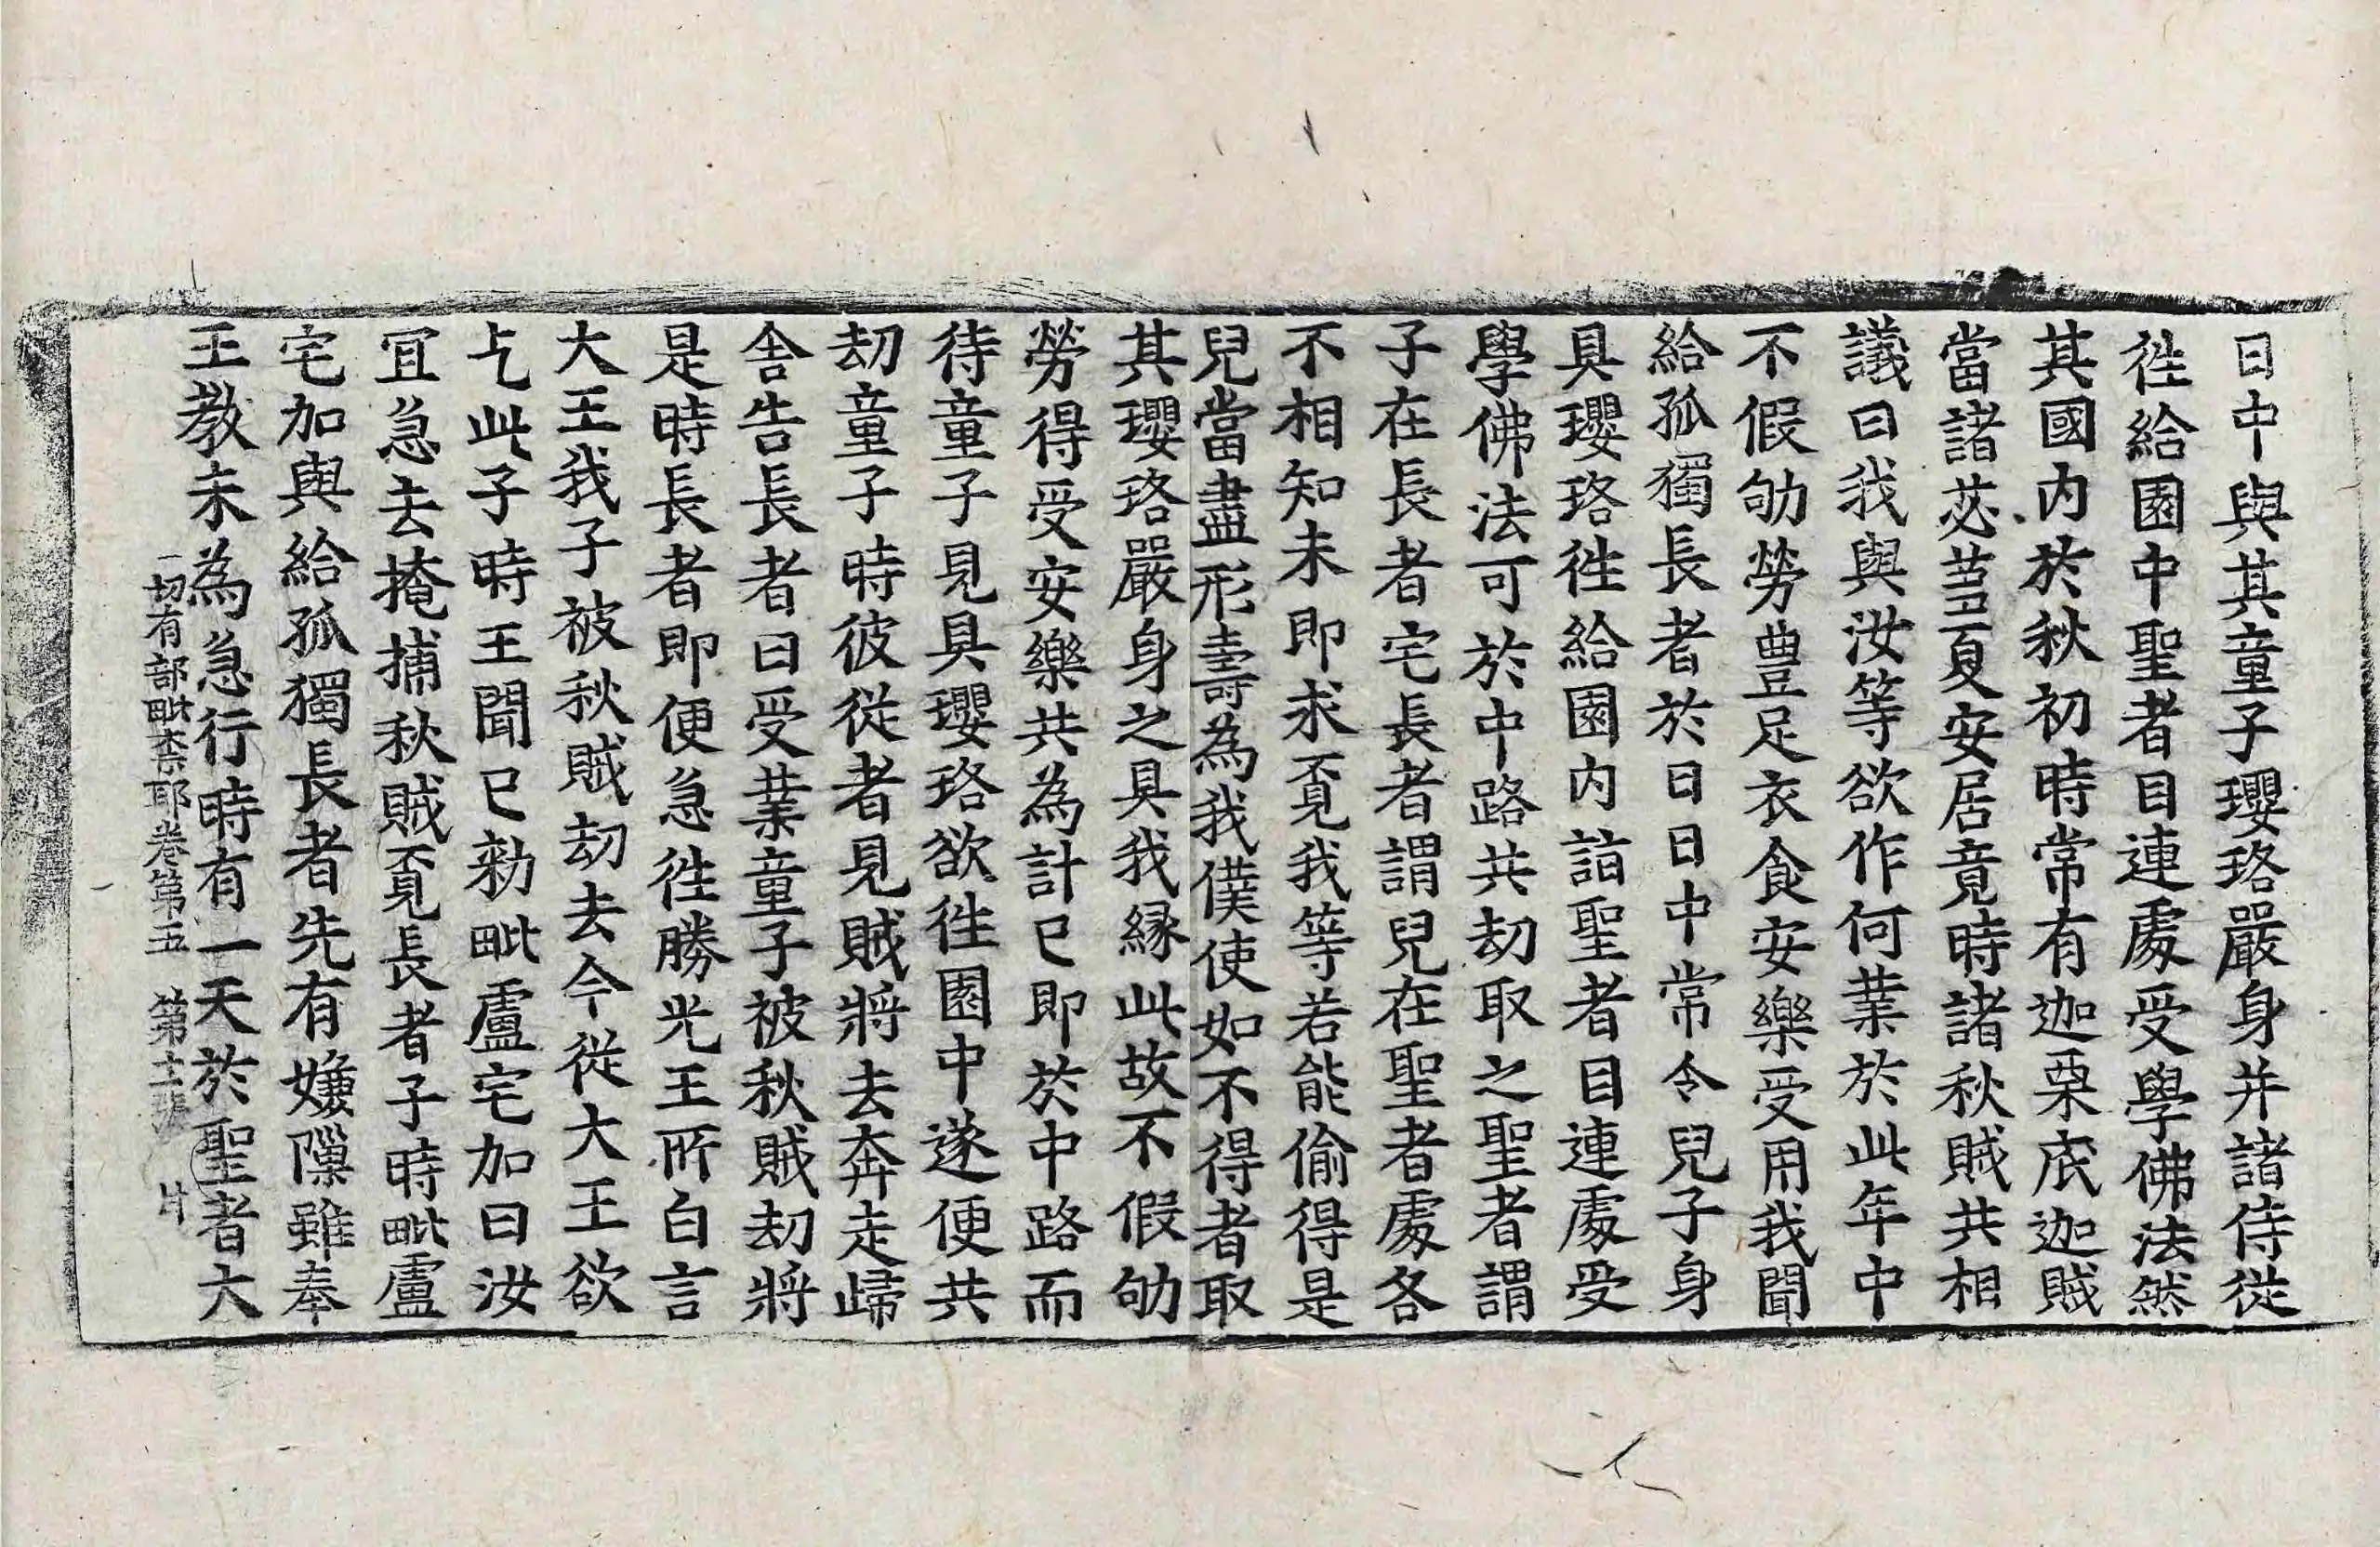 日中與其童子瓔珞嚴身并諸侍從
徃給園中聖者目連處受學佛法然
其國內於秋初時常有迦栗底迦賊
當諸苾芻夏安居竟時諸秋賊共相
議曰我與汝等欲作何業於此年中
不假劬勞豊足衣食安樂受用我聞
給孤獨長者於日日中常令兒子身
具瓔珞徃給園內詣聖者目連處受
學佛法可於中路共劫取之聖者謂
子在長者宅長者謂兒在聖者處各
不相知未即求覓我等若能偷得是
兒當盡形壽為我僕使如不得者取
其瓔珞嚴身之具我緣此故不假劬
勞得受安樂共為計已即於中路而
待童子見具瓔珞欲徃園中遂便共
劫童子時彼從者見賊將去奔走歸
舍告長者曰受業童子被秋賊劫將
是時長者即便急徃勝光王所白言
大王我子被秋賊劫去今從大王欲
乞此子時王聞已勑毗盧宅加曰汝
冝急去掩捕秋賊覓長者子時毗盧
宅加與給孤獨長者先有嫌隟雖奉
王教未為急行時有一天於聖者大
一切有部毗柰耶卷第五 第十二張